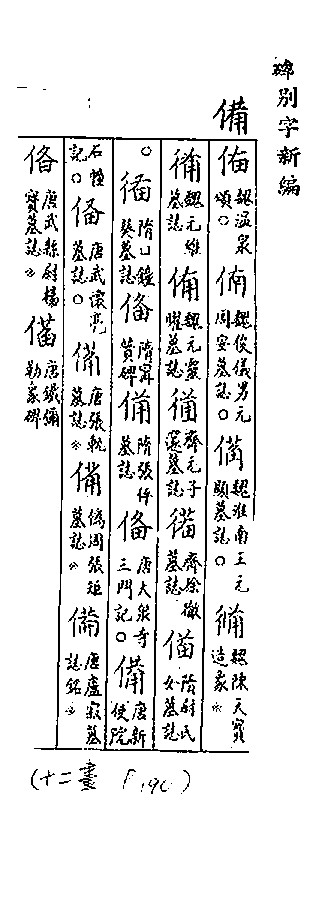 碑別字新編
備
魏溫泉頌○ 魏俊儀男元周安墓誌○ 備 魏淮南王元顯墓誌○ 魏陳天寶造象※
魏元維墓誌 魏元靈曜墓誌 齊元子邃墓誌 齊徐徹墓誌 隋尉氏女墓誌
○ 隋口鐘葵墓誌 俻 隋甯贙碑 備 隋張儉墓誌 俻 唐大泉寺三門記○ 備 唐新使院
石幢記○ 俻 唐武懷亮墓誌○ 備 唐張軌墓誌※ 備 偽周張矩墓誌※ 備 唐盧寂墓誌銘※
俻 唐武緜尉楊寶墓誌※ 唐鐵彌勒象碑
(十二畫 190)